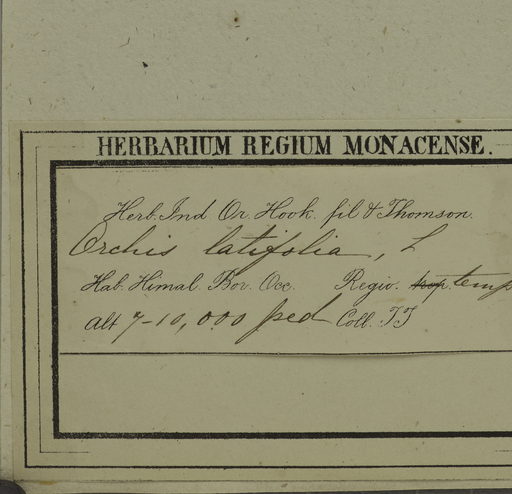 HERBARIUM REGIUM MONACENSE.
Herb. Ind Or. Hook. fil & Thomson.
Orchis latifolia, L
Hab. Himal. Bor. Occ. Regio. trop. temp
Alt 7-10,000 ped Coll. TT